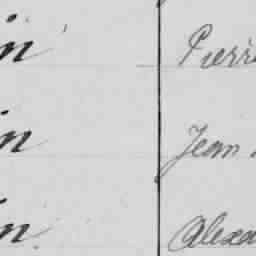 in Pierre
in Jean
in Alexa